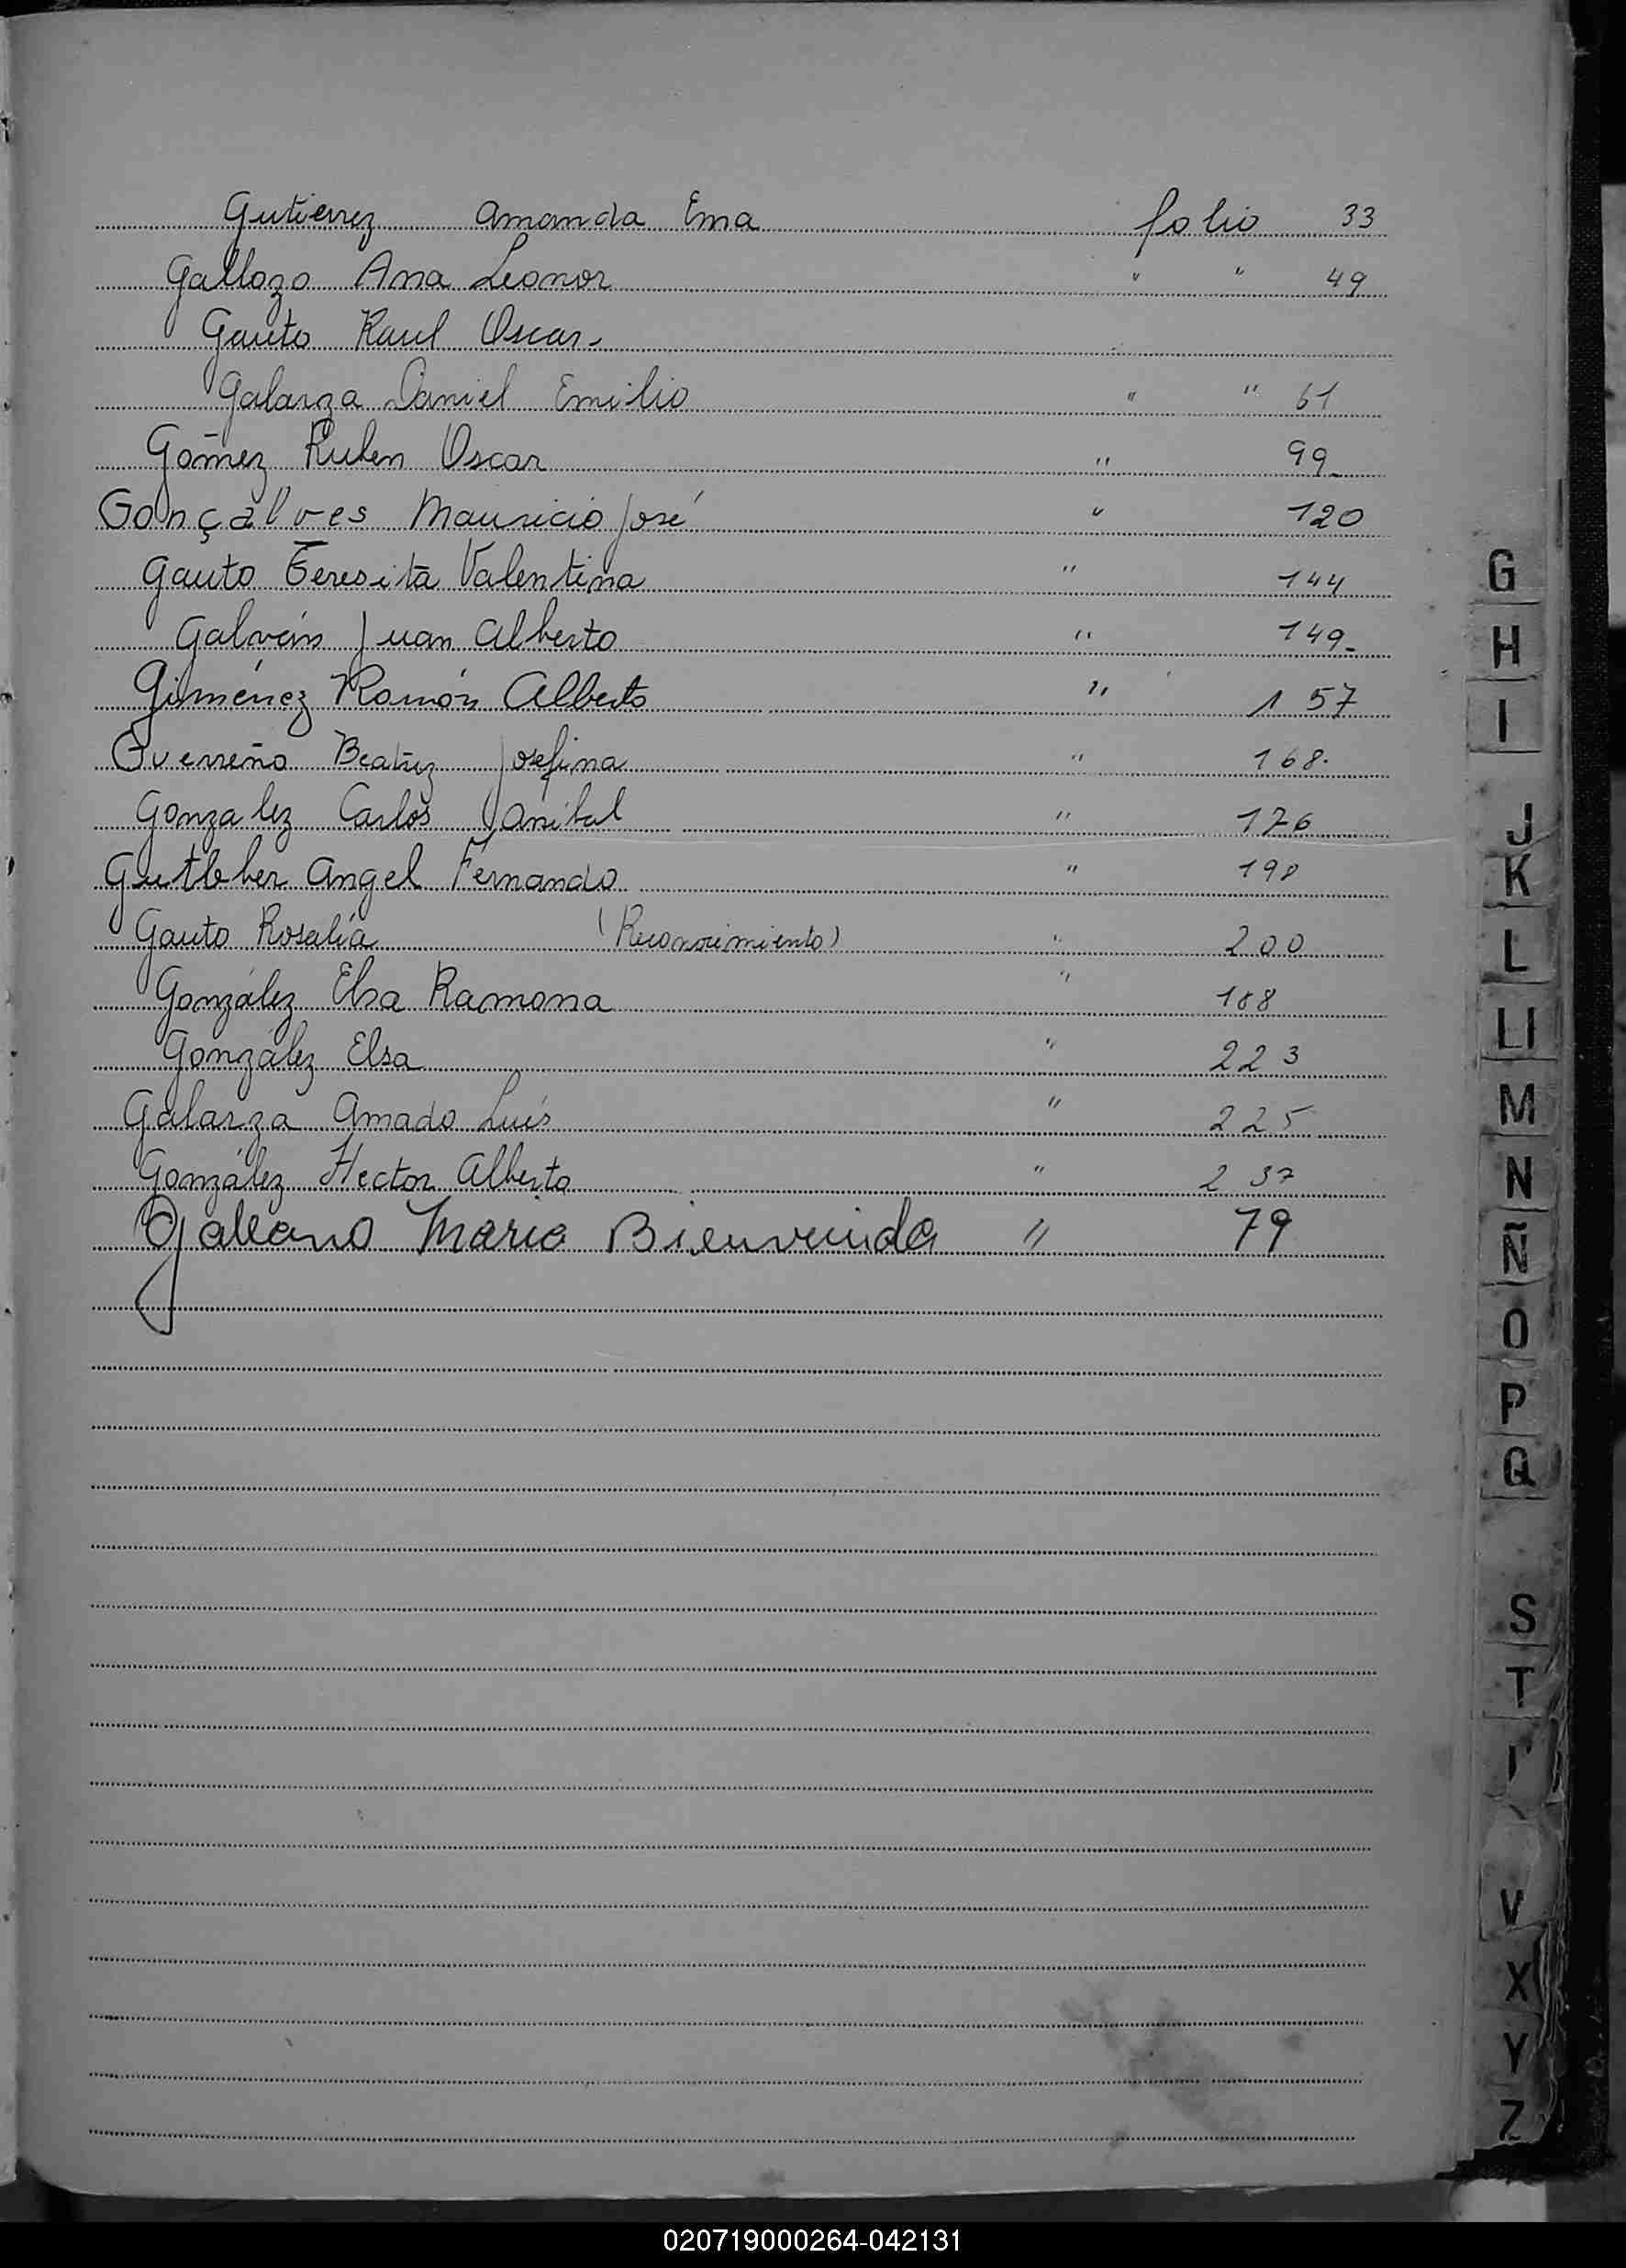 Gutierrez Amanda Ema folio 33
Gallozo Ana Leonor " " 49
Gauto Raul Oscar -
Galarza Daniel Emilio " " 61
Gómez Ruben Oscar " 99-
Gonçalves Mauricio José " 120
Gauto Teresita Valentina " 144
Galván Juan Alberto " 149-
Giménez Ramón Alberto " 157
Guerreño Beatriz Josefina " 168.
Gonzalez Carlos Anibal " 176
Gutleber Angel Fernando " 198
Gauto Rosalía (Reconocimiento) " 200
González Elsa Ramona " 188
González Elsa " 223
Galarza Amado Luis " 225
González Hector Alberto " 237
Galeano Maria Bienvenida " 79
G
H
I
J
K
L
Ll
M
N
Ñ
O
P
Q
S
T
V
X
Y
Z
020719000264-042131